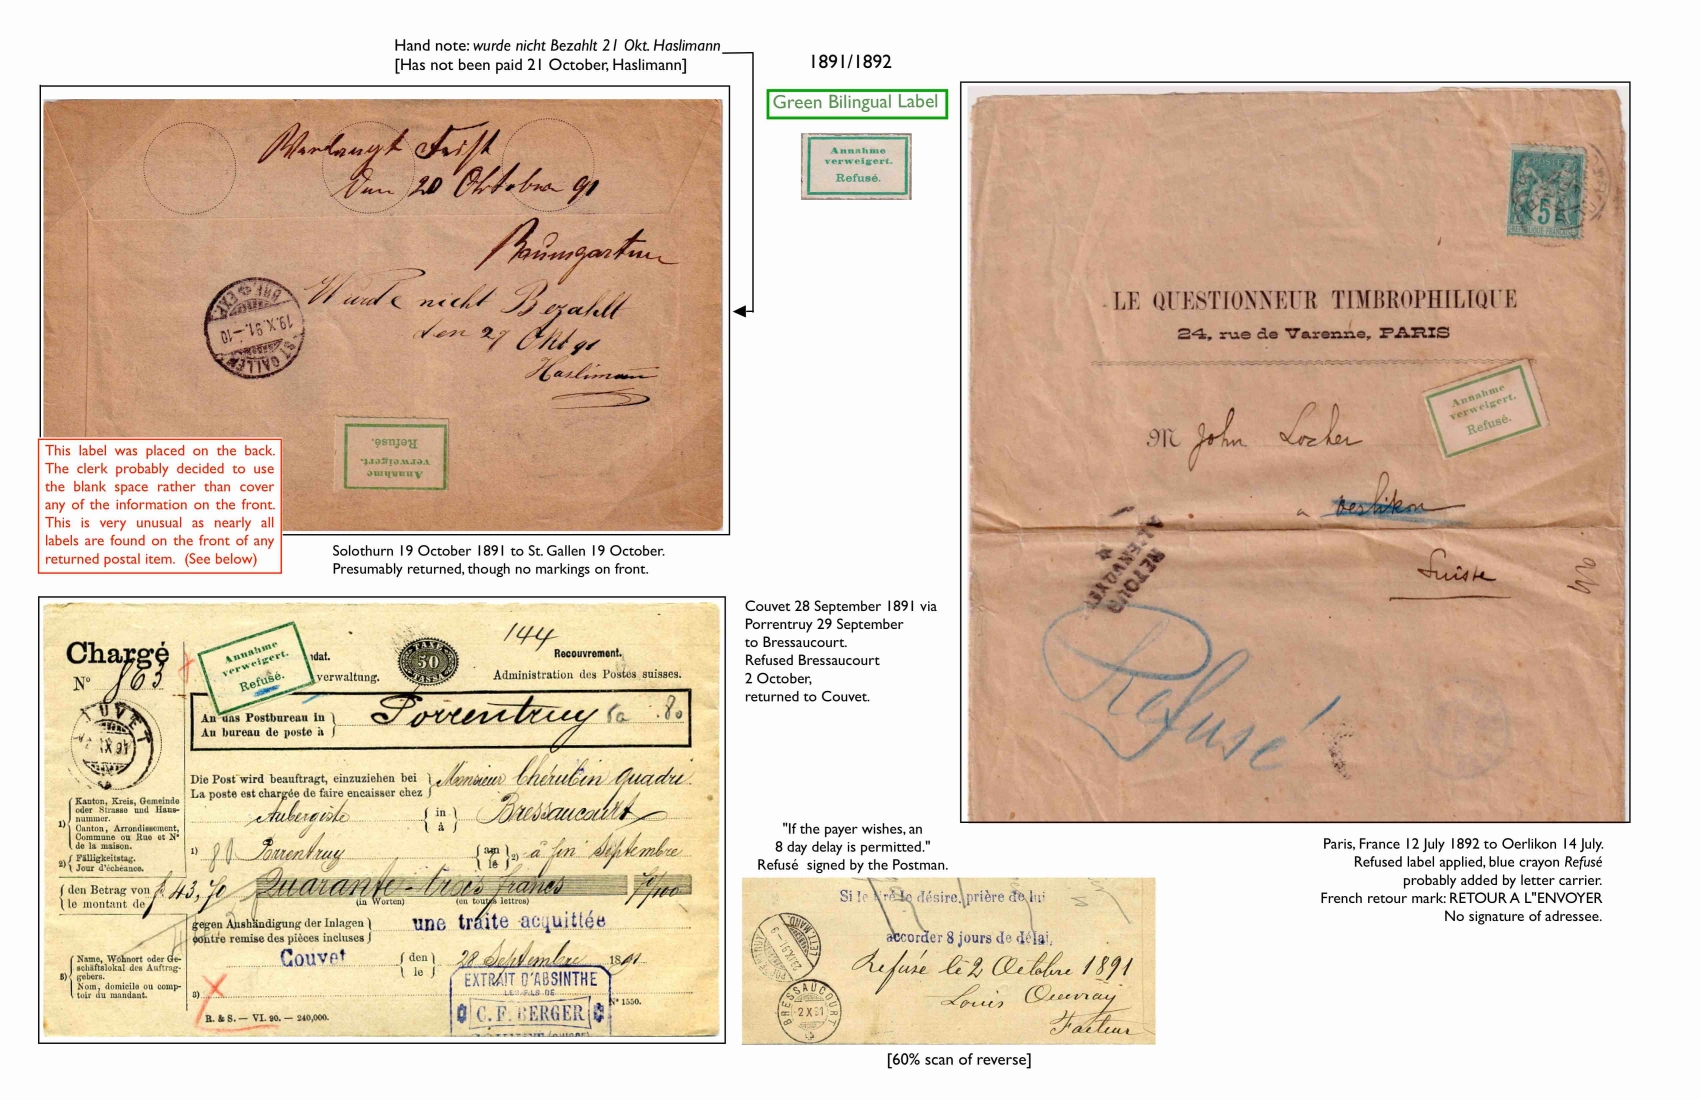 Hand note: wurde nicht Bezahlt 21 Okt. Haslimann
[Has not been paid 21 October, Haslimann]
1891/1892
Green Bilingual Label
Annahme
verweigert.
Refusé.
Verlangt Frist
Den 20 Oktober 91
Baumgartner
Wurde nicht Bezahlt
den 21 Okt 91
Haslimann
BRF. EXP.
19.X.91.–10
ST. GALLEN
Annahme
verweigert.
Refusé.
This label was placed on the back.
The clerk probably decided to use
the blank space rather than cover
any of the information on the front.
This is very unusual as nearly all
labels are found on the front of any
returned postal item. (See below)
Solothurn 19 October 1891 to St. Gallen 19 October.
Presumably returned, though no markings on front.
5
LE QUESTIONNEUR TIMBROPHILIQUE
24, rue de Varenne, PARIS
Annahme
verweigert.
Refusé.
M John Locher
a Oerlikon
Suisse
RETOUR
A L'ENVOYEUR
Refusé
Paris, France 12 July 1892 to Oerlikon 14 July.
Refused label applied, blue crayon Refusé
probably added by letter carrier.
French retour mark: RETOUR A L"ENVOYER
No signature of adressee.
Chargé
N° 863
Annahme
verweigert.
Refusé.
144
dat.
TAXE 50 TASSE
Recouvrement.
verwaltung.
Administration des Postes suisses.
COUVET
An das Postbureau in
Au bureau de poste à
Porrentruy
80
Die Post wird beauftragt, einzuziehen bei
La poste est chargée de faire encaisser chez
Monsieur Chérubin Quadri
Aubergiste
in
à
Bressaucourt
1)
Porrentruy
am
le
2) à fin Septembre
Kanton, Kreis, Gemeinde
oder Strasse und Haus-
nummer.
1)
Canton, Arrondissement,
Commune ou Rue et N°
de la maison.
2)
Fälligkeitstag.
Jour d'échéance.
den Betrag von
le montant de
f. 43,70
Quarante-trois francs 70/100
(in Worten) (en toutes lettres)
gegen Aushändigung der Inlagen
contre remise des pièces incluses
une traite acquittée
Couvet
den
le
28 Septembre 1891
3)
Name, Wohnort oder Ge-
schäftslokal des Auftrag-
gebers.
Nom, domicile ou comp-
toir du mandant.
3)
EXTRAIT D'ABSINTHE
C. F. BERGER
N° 1550.
R. & S. — VI. 90. — 240,000.
Couvet 28 September 1891 via
Porrentruy 29 September
to Bressaucourt.
Refused Bressaucourt
2 October,
returned to Couvet.
"If the payer wishes, an
8 day delay is permitted."
Refusé signed by the Postman.
Si le tiré le désire, prière de lui
accorder 8 jours de délai,
Refusé le 2 Octobre 1891
Louis Ouvray
Facteur
BRESSAUCOURT
2 X 91
[60% scan of reverse]